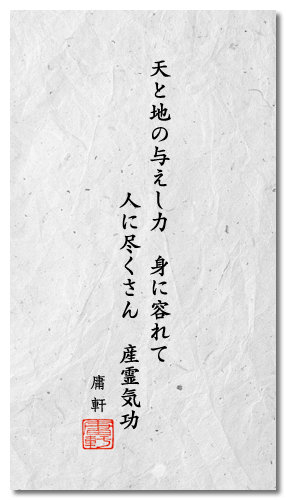 天と地の与えし力　身に容れて
人に尽くさん　産霊気功
庸軒